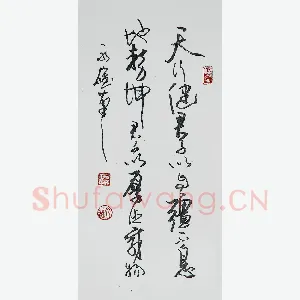 天行健君子以自强不息
地势坤君子以厚德载物
Shufawang.CN